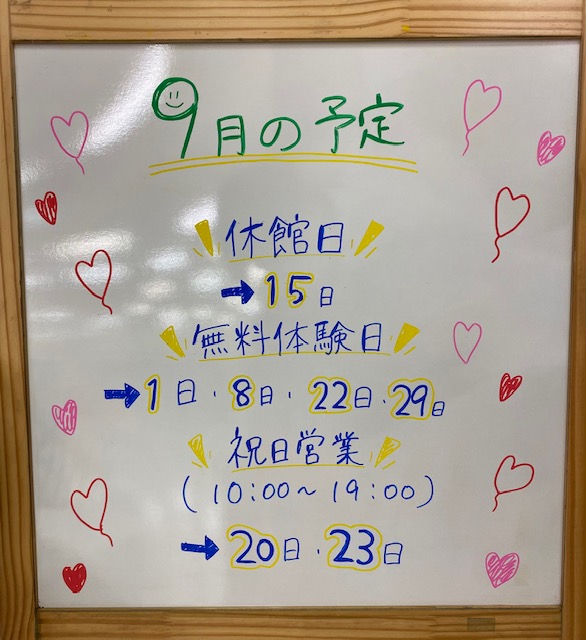 9月の予定
休館日
→15日
無料体験日
→1日・8日・22日・29日
祝日営業
(10:00~19:00)
→20日・23日